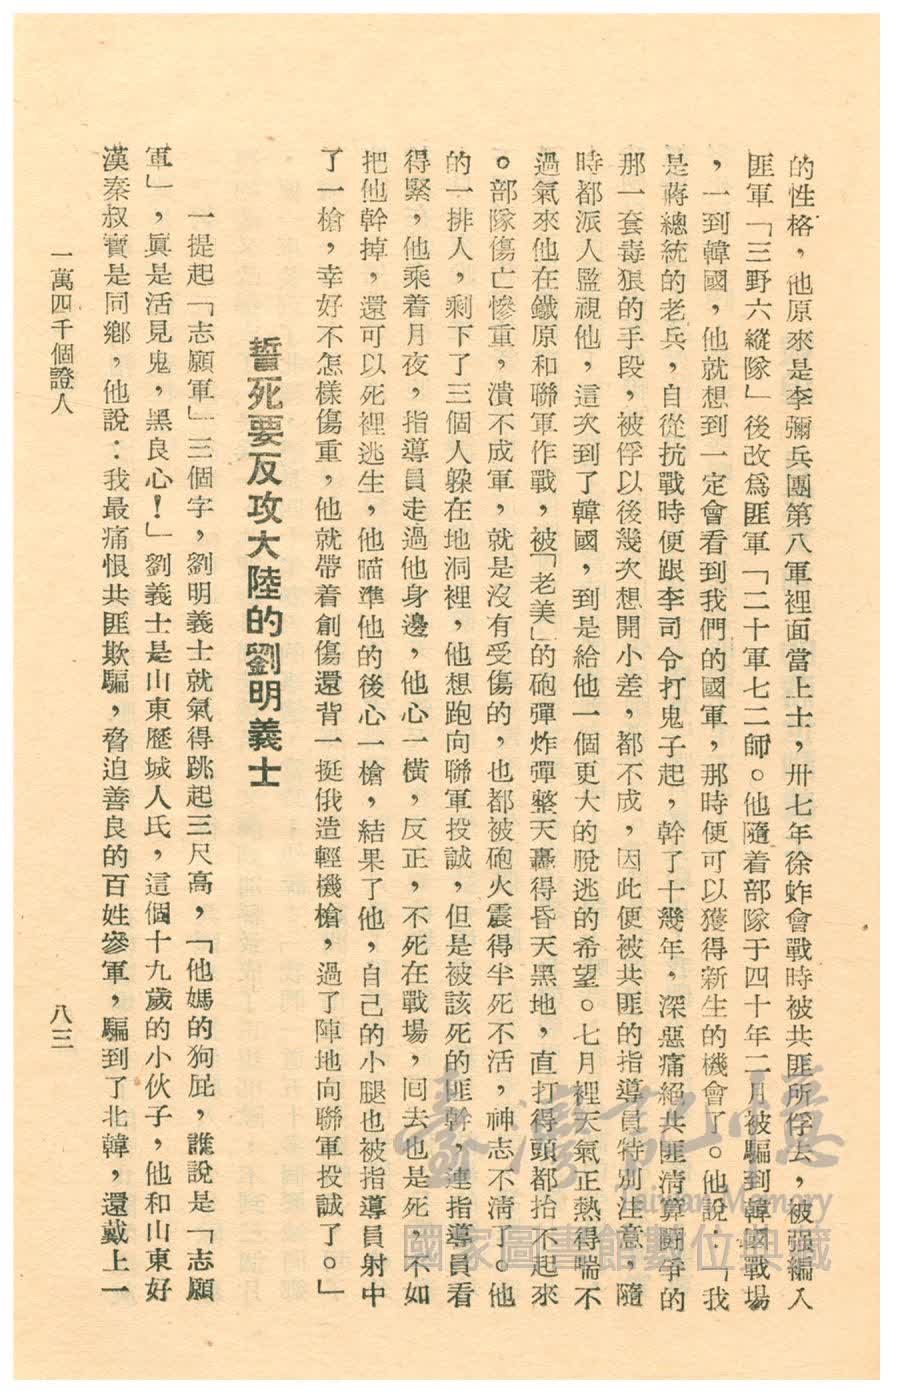 的性格，他原來是李彌兵團第八軍裡面當上士，卅七年徐蚌會戰時被共匪所俘去，被强編入
匪軍「三野六縱隊」後改爲匪軍「二十軍七二師。他隨着部隊于四十年二月被騙到韓國戰場
，一到韓國，他就想到一定會看到我們的國軍，那時便可以獲得新生的機會了。他說：「我
是蔣總統的老兵，自從抗戰時便跟李司令打鬼子起，幹了十幾年，深惡痛絕共匪清算鬪爭的
那一套毒狠的手段，被俘以後幾次想開小差，都不成，因此便被共匪的指導員特別注意，隨
時都派人監視他，這次到了韓國，到是給他一個更大的脫逃的希望。七月裡天氣正熱得喘不
過氣來他在鐵原和聯軍作戰，被「老美」的砲彈炸彈整天轟得昏天黑地，直打得頭都抬不起來
。部隊傷亡慘重，潰不成軍，就是沒有受傷的，也都被砲火震得半死不活，神志不淸了。他
的一排人，剩下了三個人躱在地洞裡，他想跑向聯軍投誠，但是被該死的匪幹，連指導員看
得緊，他乘着月夜，指導員走過他身邊，他心一橫，反正，不死在戰場，回去也是死，不如
把他幹掉，還可以死裡逃生，他瞄準他的後心一槍，結果了他，自己的小腿也被指導員射中
了一槍，幸好不怎樣傷重，他就帶着創傷還背一挺俄造輕機槍，過了陣地向聯軍投誠了。」
誓死要反攻大陸的劉明義士
一提起「志願軍」三個字，劉明義士就氣得跳起三尺高，「他媽的狗屁，誰說是「志願
軍」，眞是活見鬼，黑良心！」劉義士是山東歷城人氏，這個十九歲的小伙子，他和山東好
漢秦叔寶是同鄕，他說：我最痛恨共匪欺騙，脅迫善良的百姓參軍，騙到了北韓，還戴上一
一萬四千個證人
八三
臺灣記憶
Taiwan Memory
國家圖書館數位典藏